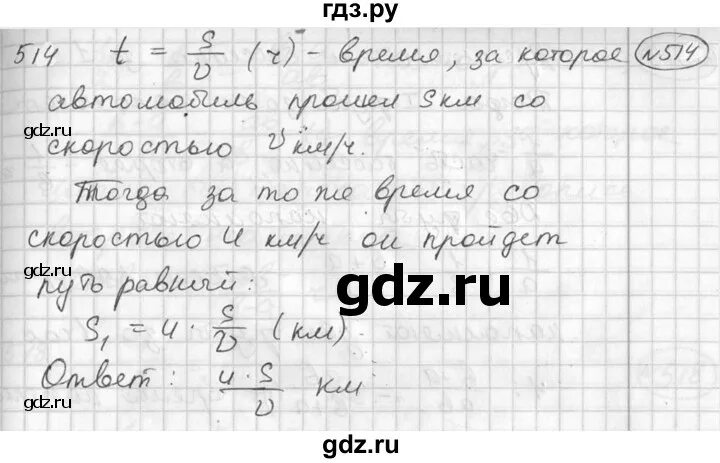 гдз.ру
514 t = S/v (ч) - время, за которое №514
автомобиль прошел S км со
gdz.ru gdz.ru
скоростью v км/ч.
Тогда за то же время со
скоростью u км/ч он пройдет
gdz.ru
путь равный:
gdz.ru
S₁ = u · S/v (км)
Ответ: u · S/v км
gdz.ru gdz.ru
gdz.ru